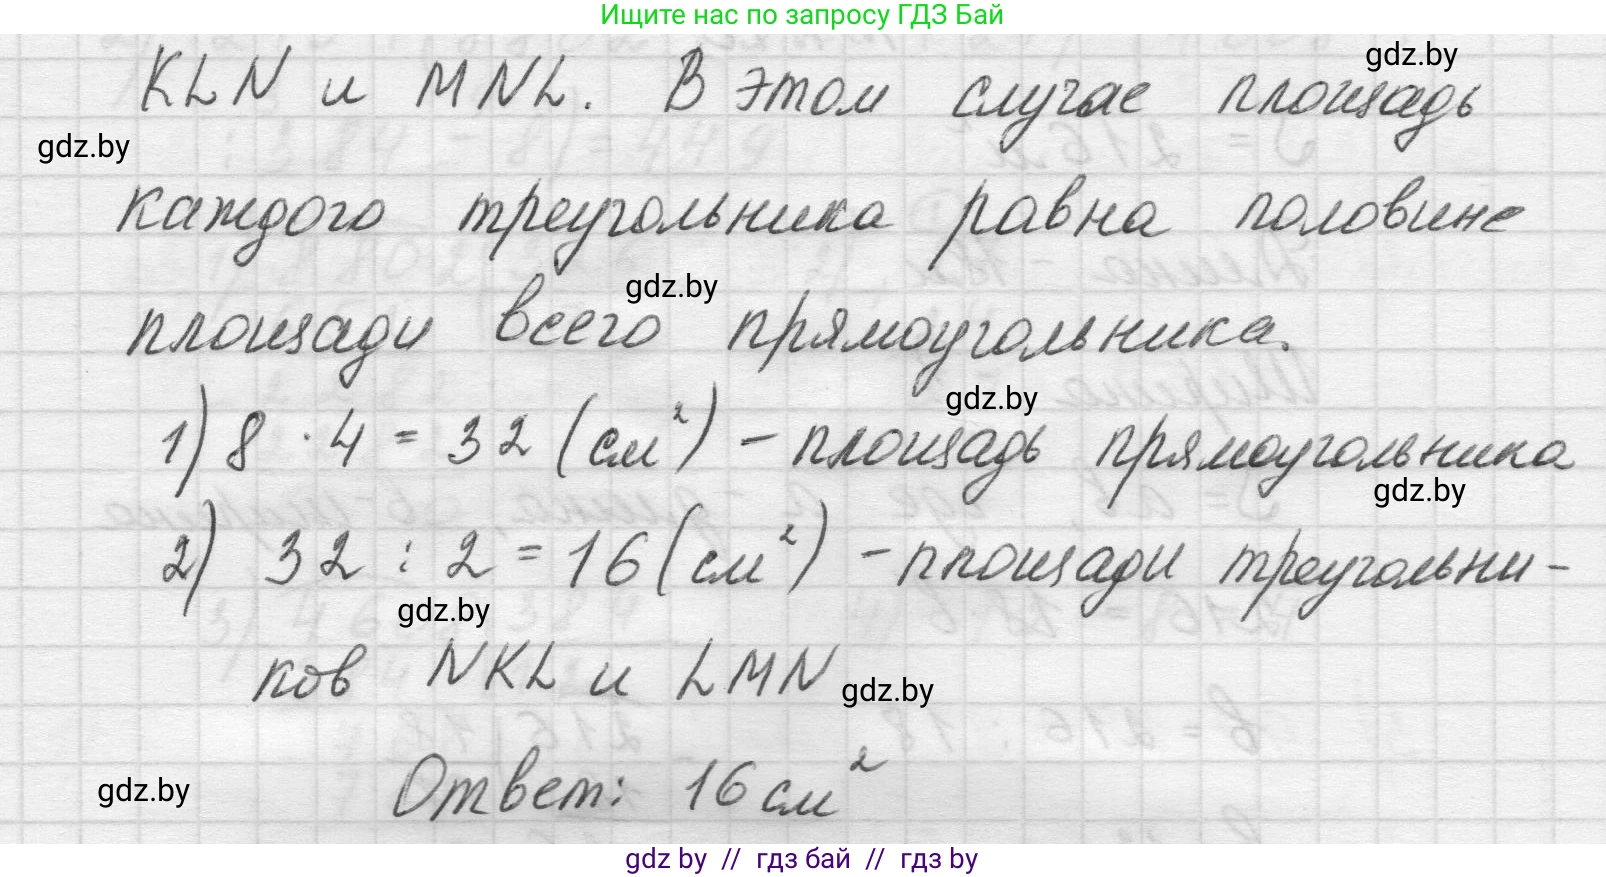 Ищите нас по запросу ГДЗ Бай
gdz.by
KLN и MNL. В этом случае площадь
gdz.by
каждого треугольника равна половине
gdz.by
площади всего прямоугольника.
gdz.by
1) 8 · 4 = 32 (см²) - площадь прямоугольника
gdz.by
2) 32 : 2 = 16 (см²) - площади треугольни-
gdz.by
ков NKL и LMN
gdz.by
gdz.by
Ответ: 16 см²
gdz by // гдз бай // gdz by